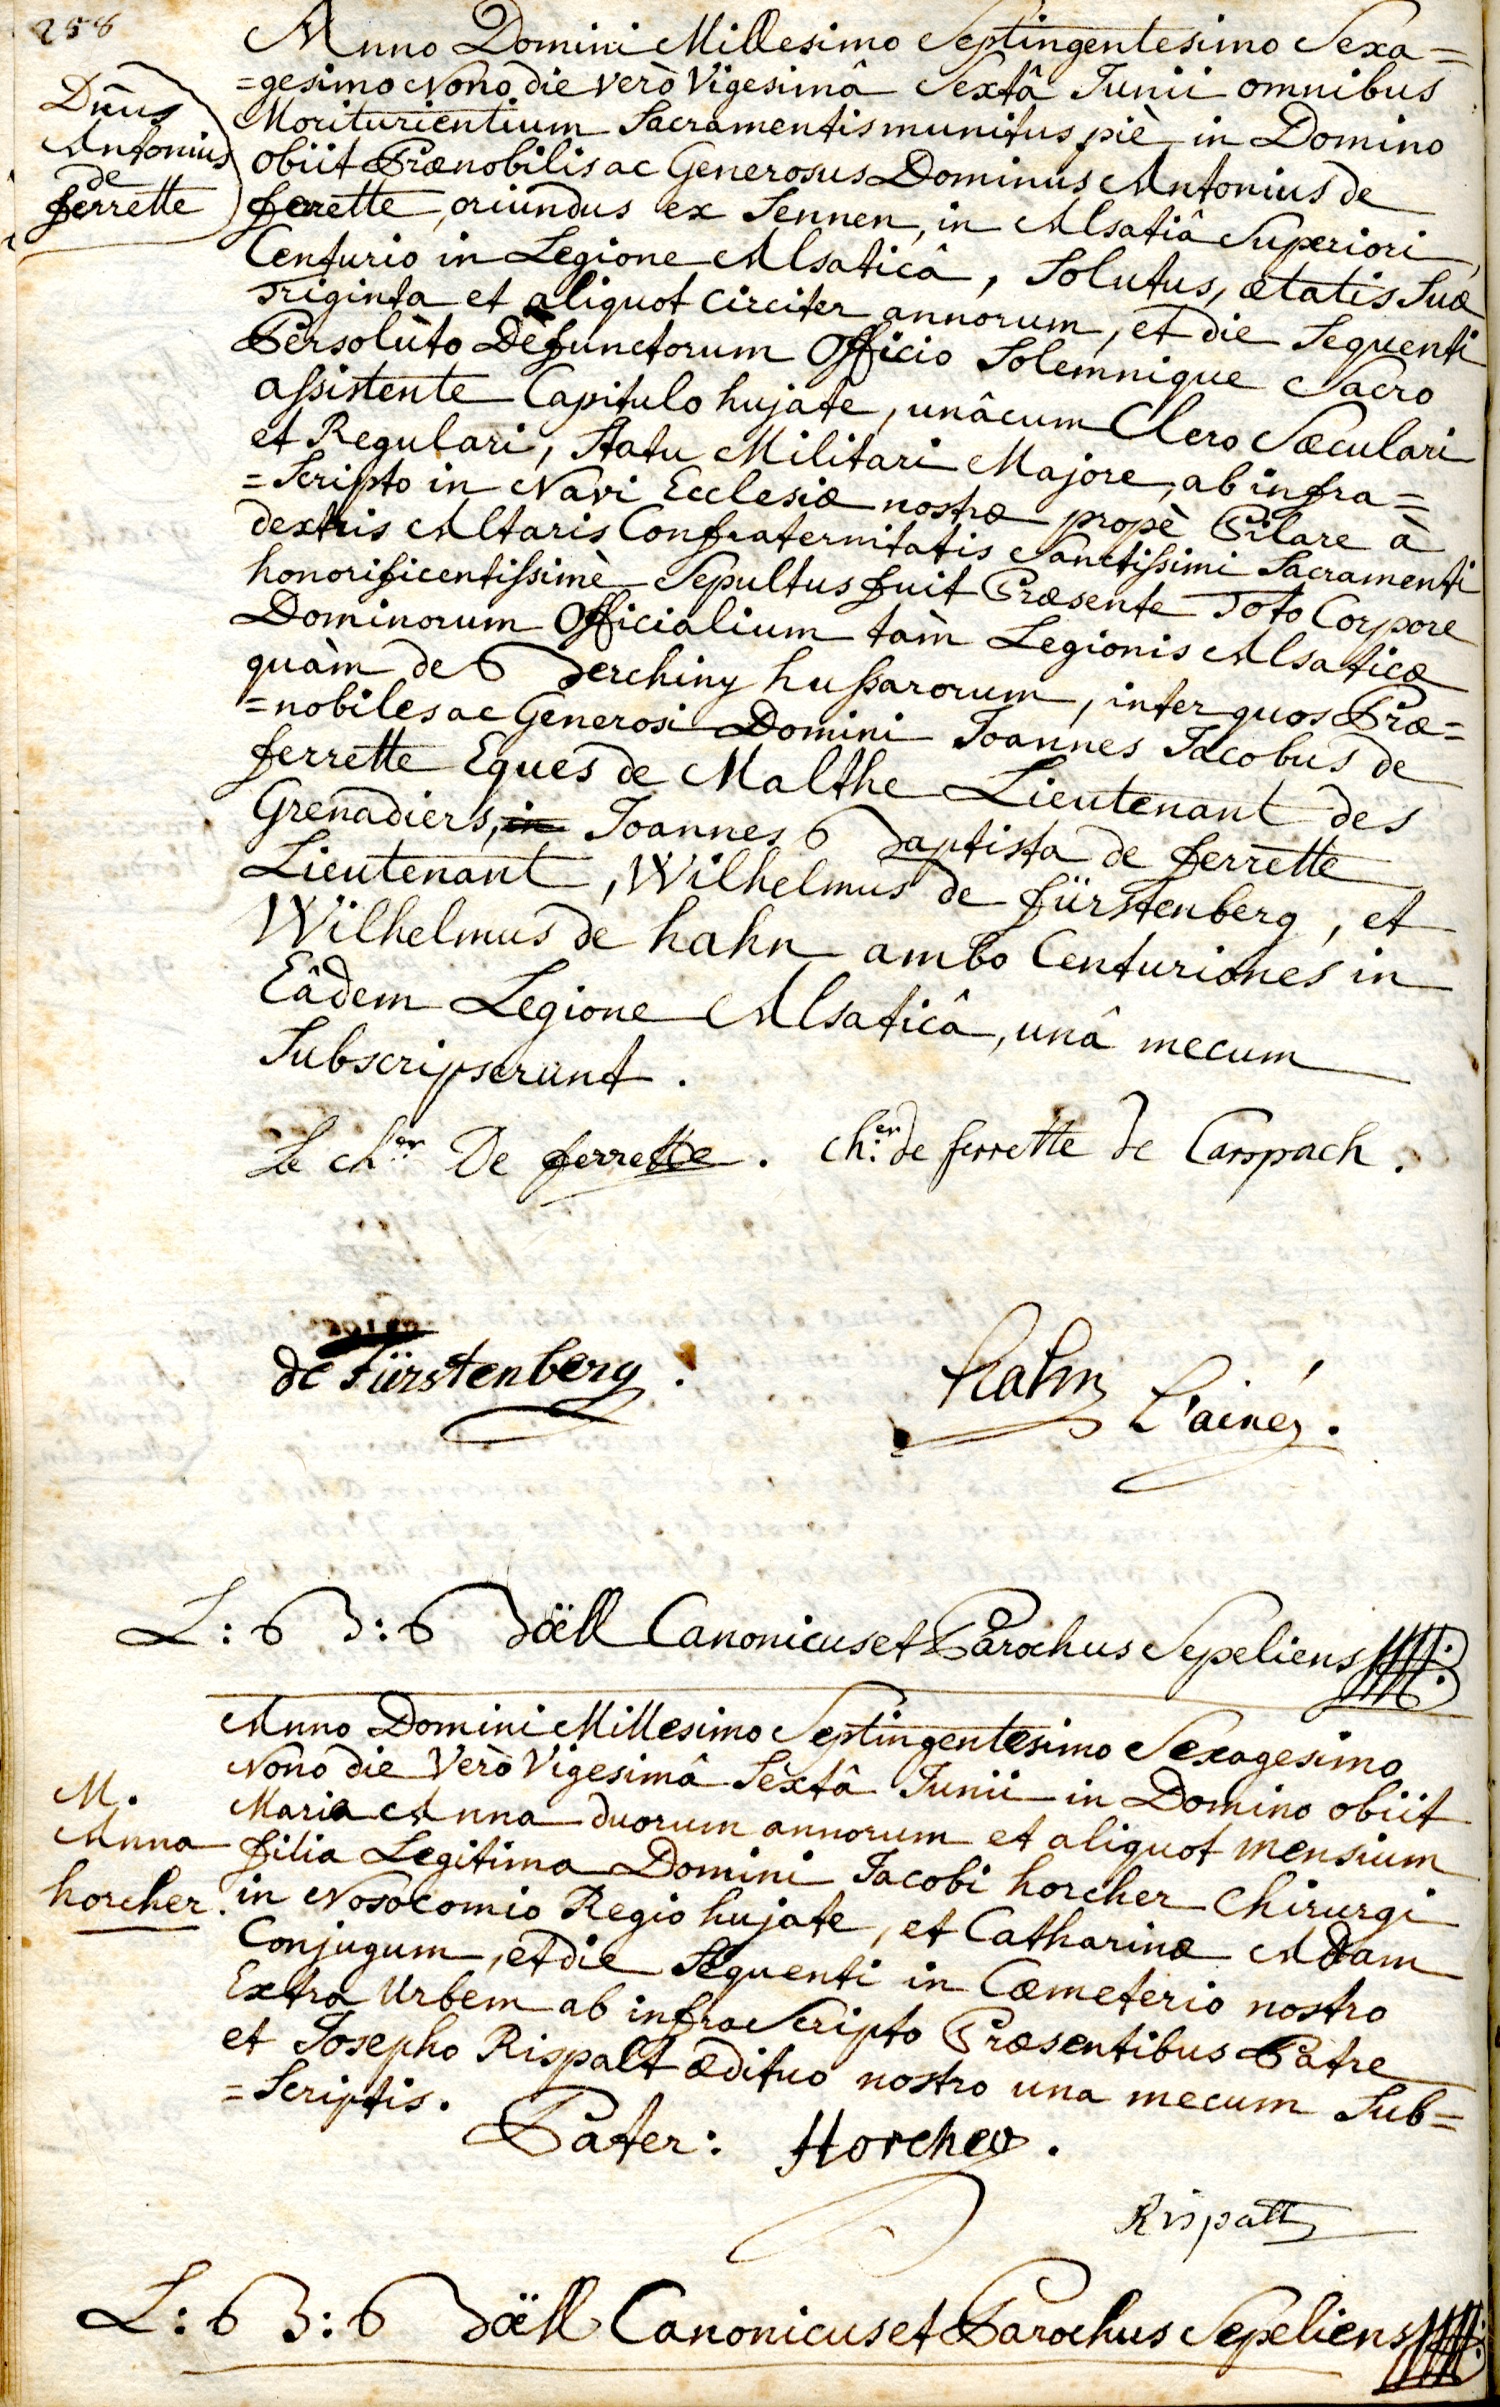 258
Anno Domini Millesimo Septingentesimo Sexa=
=gesimo Nono die verò Vigesimâ Sextâ Junii omnibus
Moriturientium Sacramentis munitus piè in Domino
obiit Prænobilis ac Generosus Dominus Antonius de
ferrette, oriundus ex Sennen, in Alsatiâ Superiori,
Centurio in Legione Alsaticâ, Solutus, ætatis Suæ
Triginta et aliquot circiter annorum, et die Sequenti
Persolùto Defunctorum Officio Solemnique Sacro
assistente Capitulo hujate, unâcum Clero Sæculari
et Regulari, Statu Militari Majore, ab infra=
=Scripto in Navi Ecclesiæ nostræ propè Pilare à
dextris Altaris Confraternitatis Sanctissimi Sacramenti
honorificentissimè Sepultus fuit Præsente Toto Corpore
Dominorum Officialium tàm Legionis Alsaticæ
quàm de Berchiny hussarorum, inter quos Præ=
=nobiles ac Generosi Domini Joannes Jacobus de
ferrette Eques de Malthe Lieutenant des
Grenadiers, in Joannes Baptista de ferrette
Lieutenant, Wilhelmus de fürstenberg, et
Wilhelmus de hahn ambo Centuriones in
Eâdem Legione Alsaticâ, unâ mecum
Subscripserunt.
Dñus
Antonius
de
ferrette
Le ch.er De ferrette. ch.er de ferrette de Carspach.
de Fürstenberg. hahn L'ainé.
L: B: Böll Canonicus et Parochus Sepeliens
Anno Domini Millesimo Septingentesimo Sexagesimo
Nono die Verò Vigesimâ Sextâ Junii in Domino obiit
Maria Anna duorum annorum et aliquot mensium
filia Legitima Domini Jacobi horcher Chirurgi
in Nosocomio Regio hujate, et Catharinæ Adam
Conjugum, et die Sequenti in Cæmeterio nostro
Extra Urbem ab infra Scripto Præsentibus Patre
et Josepho Rispalt ædituo nostro una mecum Sub=
=Scriptis.
M.
Anna
horcher.
Pater: Horcher.
Rispalt
L: B: Böll Canonicus et Parochus Sepeliens